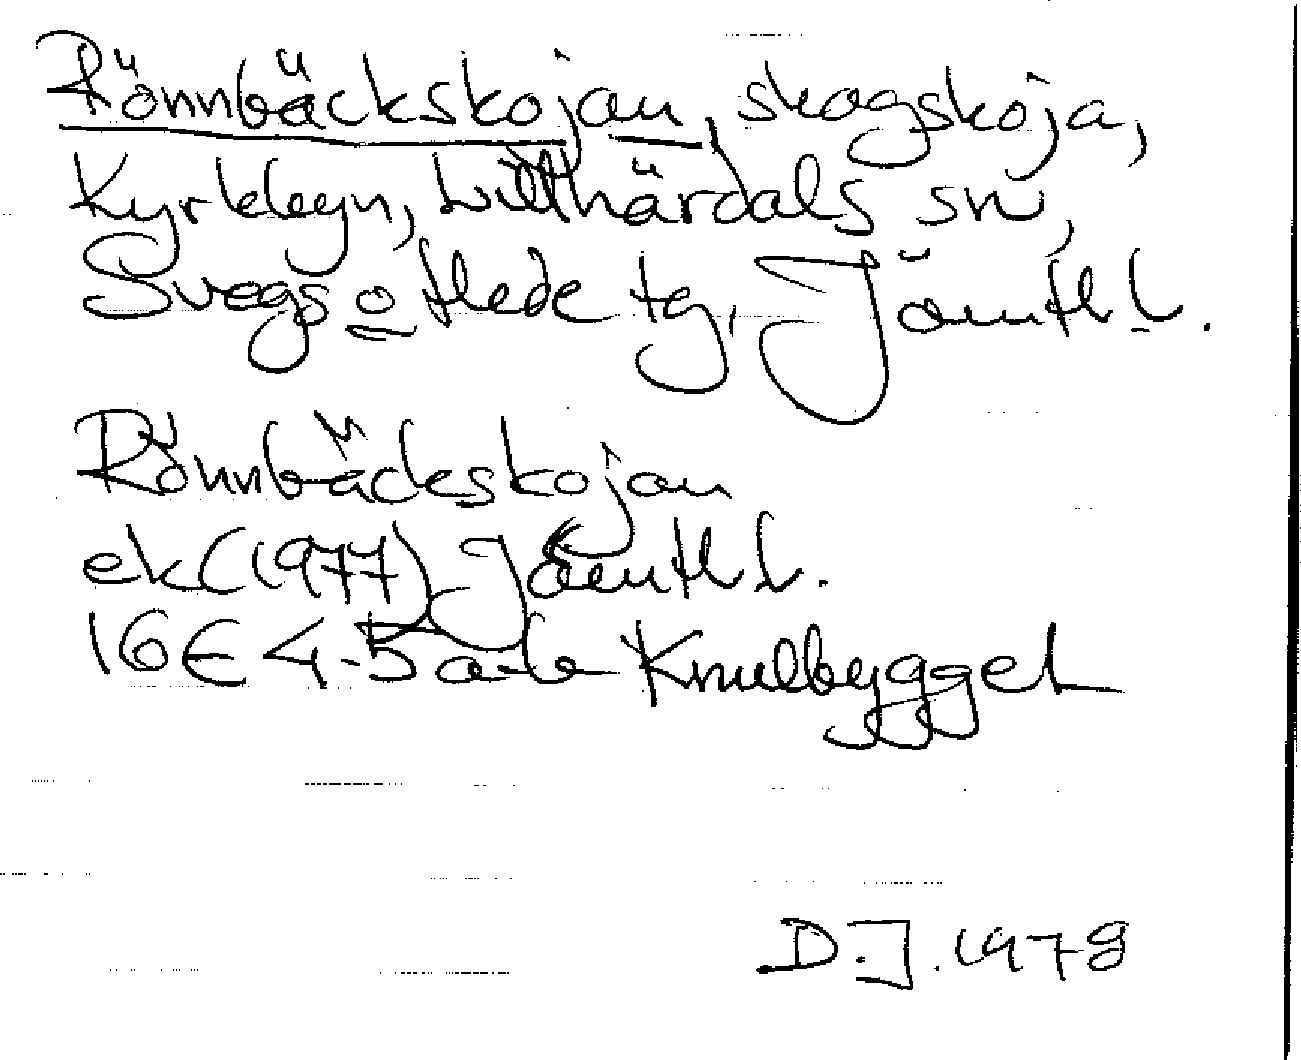 Rönnbäckskojan, skogskoja,
Kyrkbyn, Lillhärdals sn,
Svegs o Hede tg, Jämtl l.
Rönnbäckskojan
ek (1977) Jämtl l.
16E 4-5 a-b Knulbygget
D.J. 1978